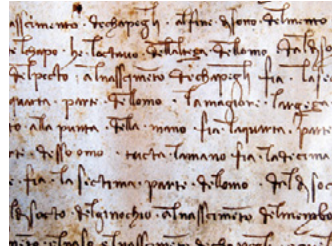 asscimento . dechapegli . alfine disocto delmento
elchapo . he loctavo dellaltezza dellomo . daldiso
delpecto . alnasscimeto dechapegli fia . lase
quarta . parte . dellomo . lamagiore . large
to . alla punta . della . mano . fia . laquarta . part
te . dessoomo . tucta lamano fia . ladecima
e . fia . la sectima . parte . dellomo . daldiso
ldi socto . delginochio . alnasscimeto delmemb